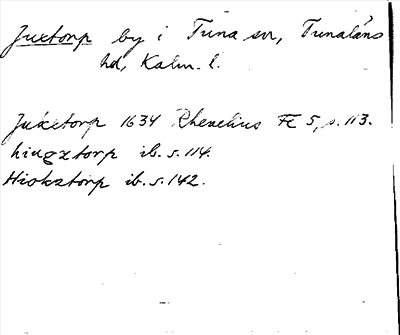 Juxtorp by i Tuna sn, Tunaläns
hd, Kalm. l.
Juxetorp 1634 Rhezelius Fc 5, s. 113.
hiugxtorp ib. s. 114.
Hiokstorp ib. s. 142.